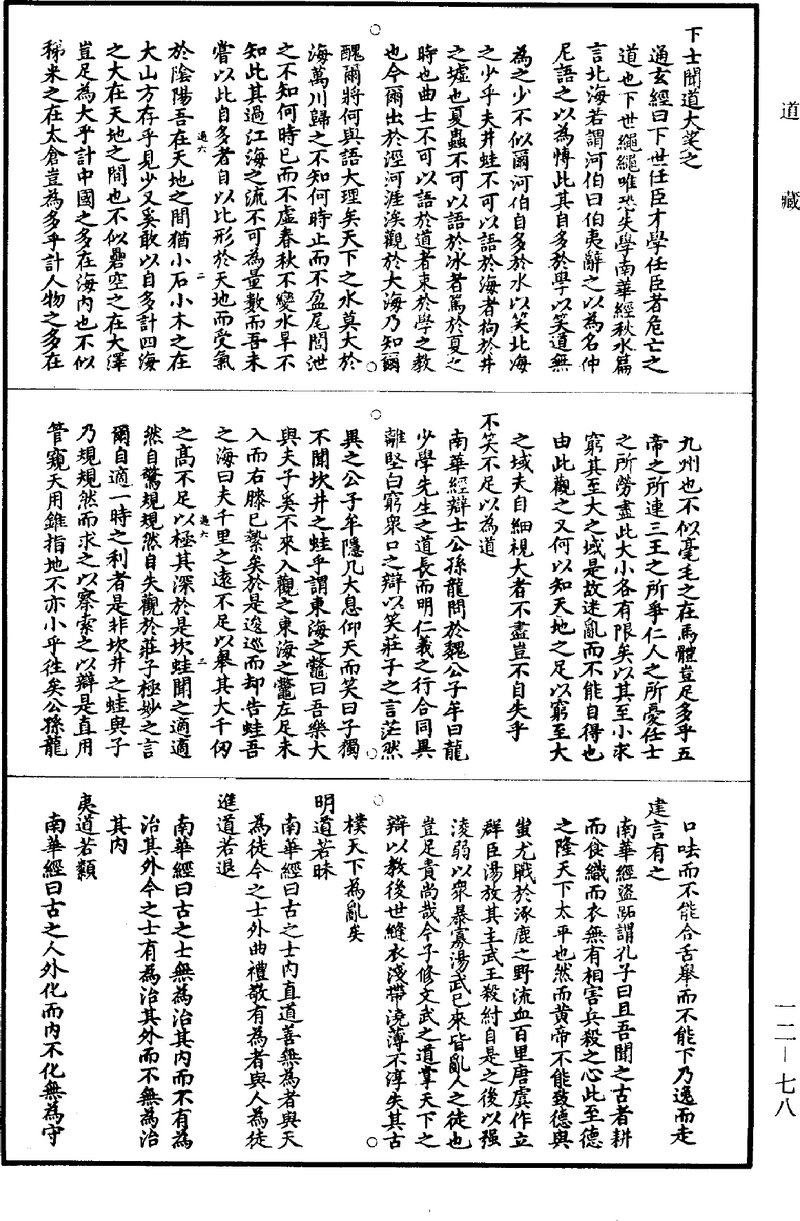 道藏
下士聞道大笑之
通玄經曰下世任臣才學任臣者危亡之
道也下世繩繩唯恐失學南華經秋水篇
言北海若謂河伯曰伯夷辭之以為名仲
尼語之以為博此其自多於學以笑道無
為之少不似爾河伯自多於水以笑北海
之少乎夫井蛙不可以語於海者拘於井
之墟也夏蟲不可以語於冰者篤於夏之
時也曲士不可以語於道者束於學之教
也今爾出於涇河涯涘觀於大海乃知爾
醜爾將何與語大理矣天下之水莫大於
海萬川歸之不知何時止而不盈尾閭泄
之不知何時已而不虛春秋不變水旱不
知此其過江海之流不可為量數而吾未
嘗以此自多者自以比形於天地而受氣
過六 二
於陰陽吾在天地之間猶小石小木之在
大山方存乎見少又奚敢以自多計四海
之大在天地之間也不似礨空之在大澤
豈足為大乎計中國之多在海內也不似
稊米之在太倉豈為多乎計人物之多在
九州也不似毫毛之在馬體豈足多乎五
帝之所連三王之所爭仁人之所憂任士
之所勞盡此大小各有限矣以其至小求
窮其至大之域是故迷亂而不能自得也
由此觀之又何以知天地之足以窮至大
之域夫自細視大者不盡豈不自失乎
不笑不足以為道
南華經辯士公孫龍問於魏公子牟曰龍
少學先生之道長而明仁義之行合同異
離堅白窮衆口之辯以笑莊子之言茫然
異之公子牟隱几大息仰天而笑曰子獨
不聞坎井之蛙乎謂東海之鼈曰吾樂大
與夫子奚不來入觀之東海之鼈左足未
入而右膝已縶矣於是逡巡而却告蛙吾
之海曰夫千里之遠不足以舉其大千仞
過六 二
之高不足以極其深於是坎蛙聞之適適
然自驚規規然自失觀於莊子極妙之言
爾自適一時之利者是非坎井之蛙與子
乃規規然而求之以察索之以辯是直用
管窺天用錐指地不亦小乎往矣公孫龍
口呿而不能合舌舉而不能下乃逸而走
建言有之
南華經盜跖謂孔子曰且吾聞之古者耕
而食織而衣無有相害兵殺之心此至德
之隆天下太平也然而黃帝不能致德與
蚩尤戰於涿鹿之野流血百里唐虞作立
群臣湯放其主武王殺紂自是之後以强
淩弱以衆暴寡湯武已來皆亂人之徒也
豈足貴尚哉今子修文武之道掌天下之
辯以教後世縫衣淺帶澆薄不淳失其古
樸天下為亂矣
明道若昧
南華經曰古之士內直道善無為者與天
為徒今之士外曲禮敬有為者與人為徒
進道若退
南華經曰古之士無為治其內而不有為
治其外今之士有為治其外而不無為治
其內
夷道若纇
南華經曰古之人外化而內不化無為守
一二—七八